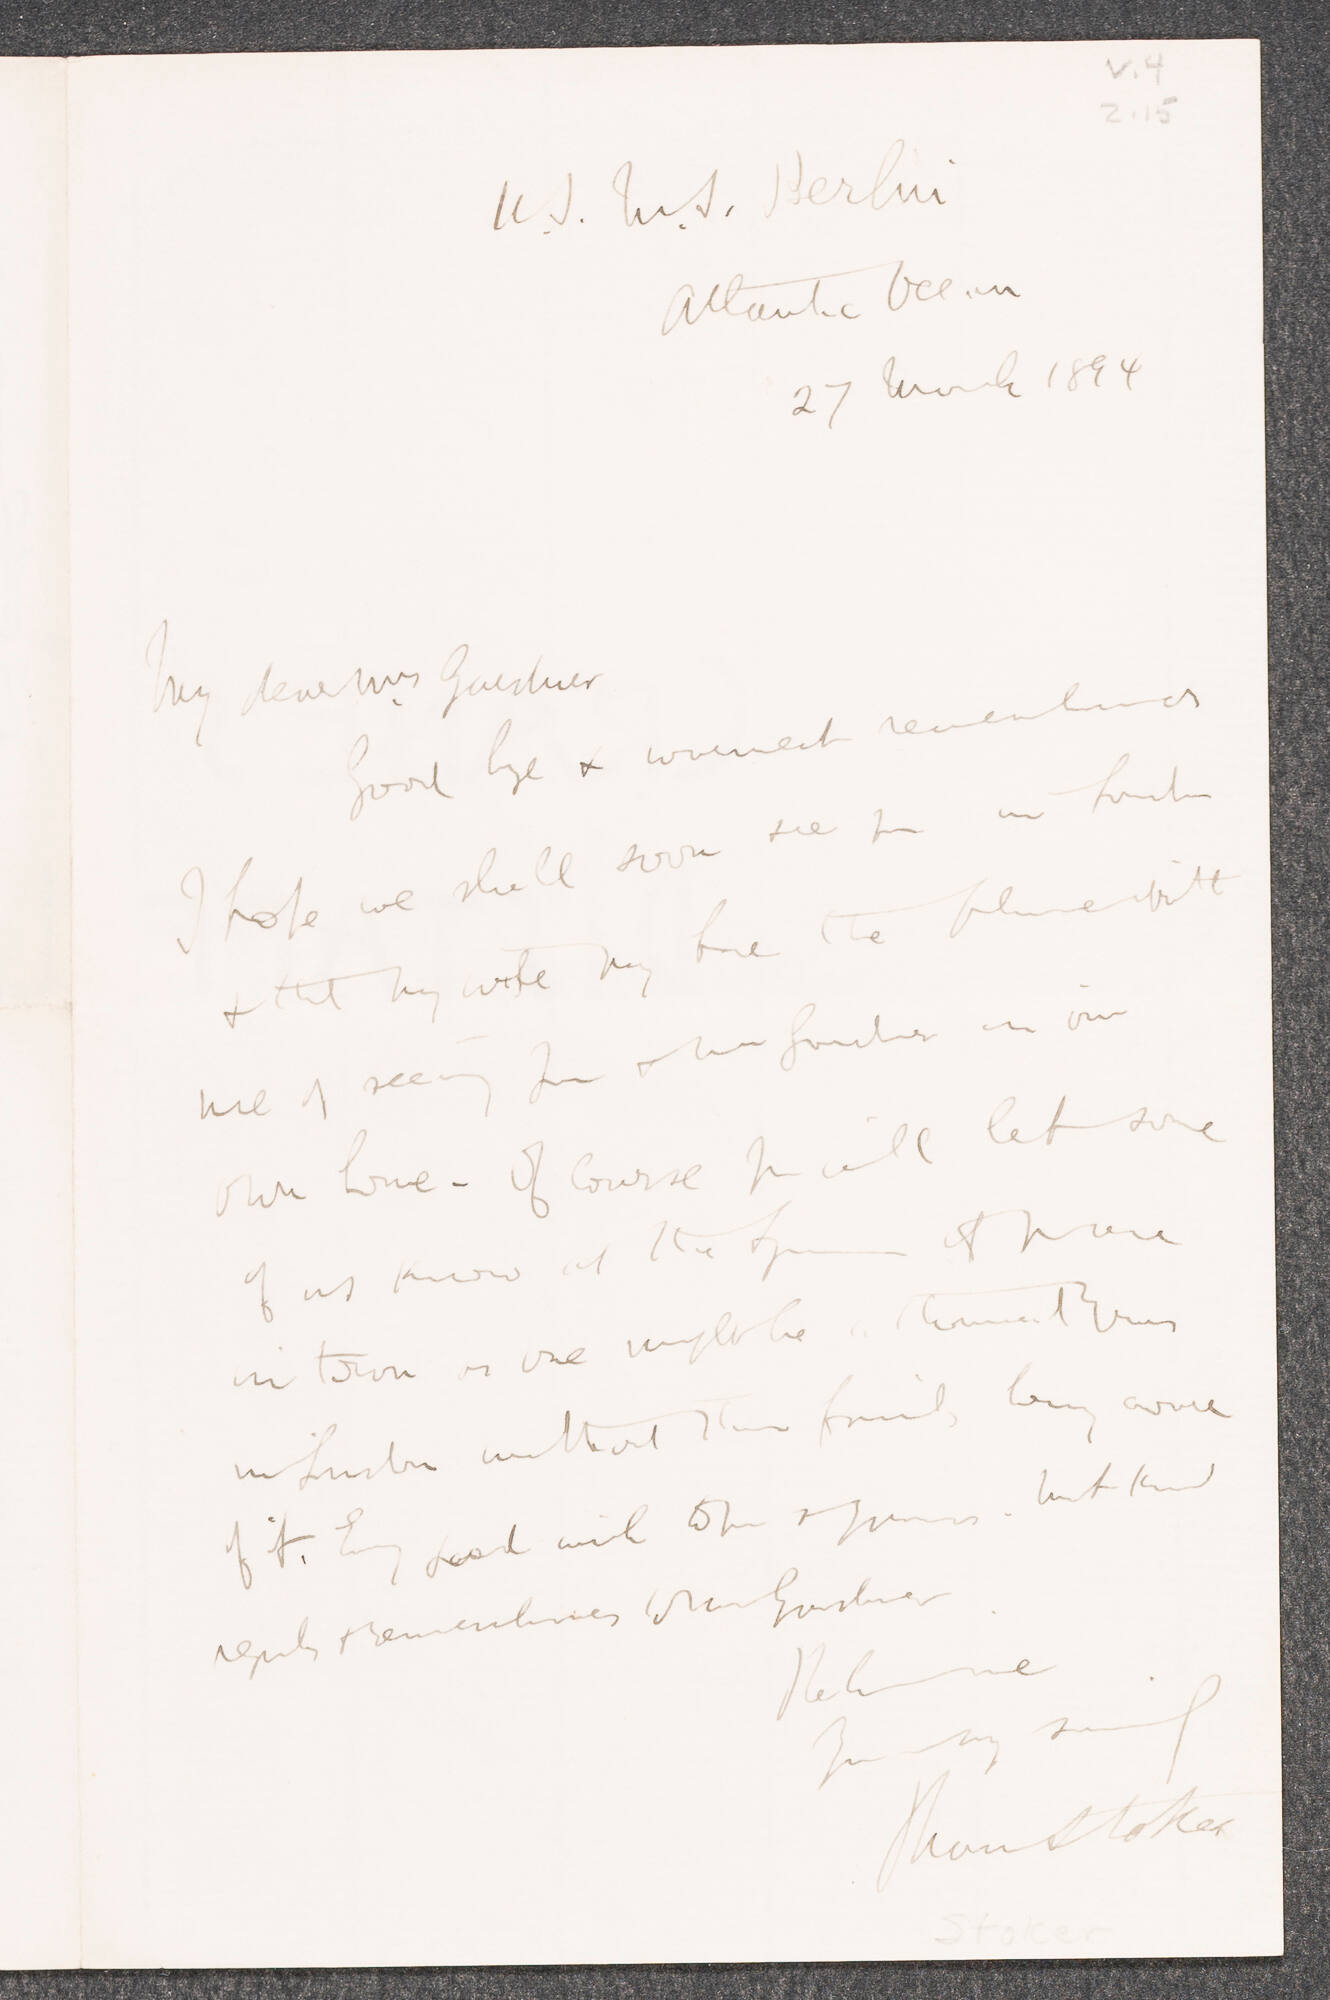 V.4
2.15
U.S. M.S. Berlin
Atlantic Ocean
27 March 1894
My dear Mrs Gardner
Good bye & warmest remembrances
I hope we shall soon see you in London
& that my wife may have the pleasure with
me of seeing you & Mr Gardner in our
own home - Of course you will let some
of us know at the Lyceum if you are
in town as one might be a thousand years
in London without their friends being aware
of it. Every good wish to you & yours. Most kind
regards & remembrances to Mr Gardner
Believe me
Yours very sincerely
Bram Stoker
Stoker